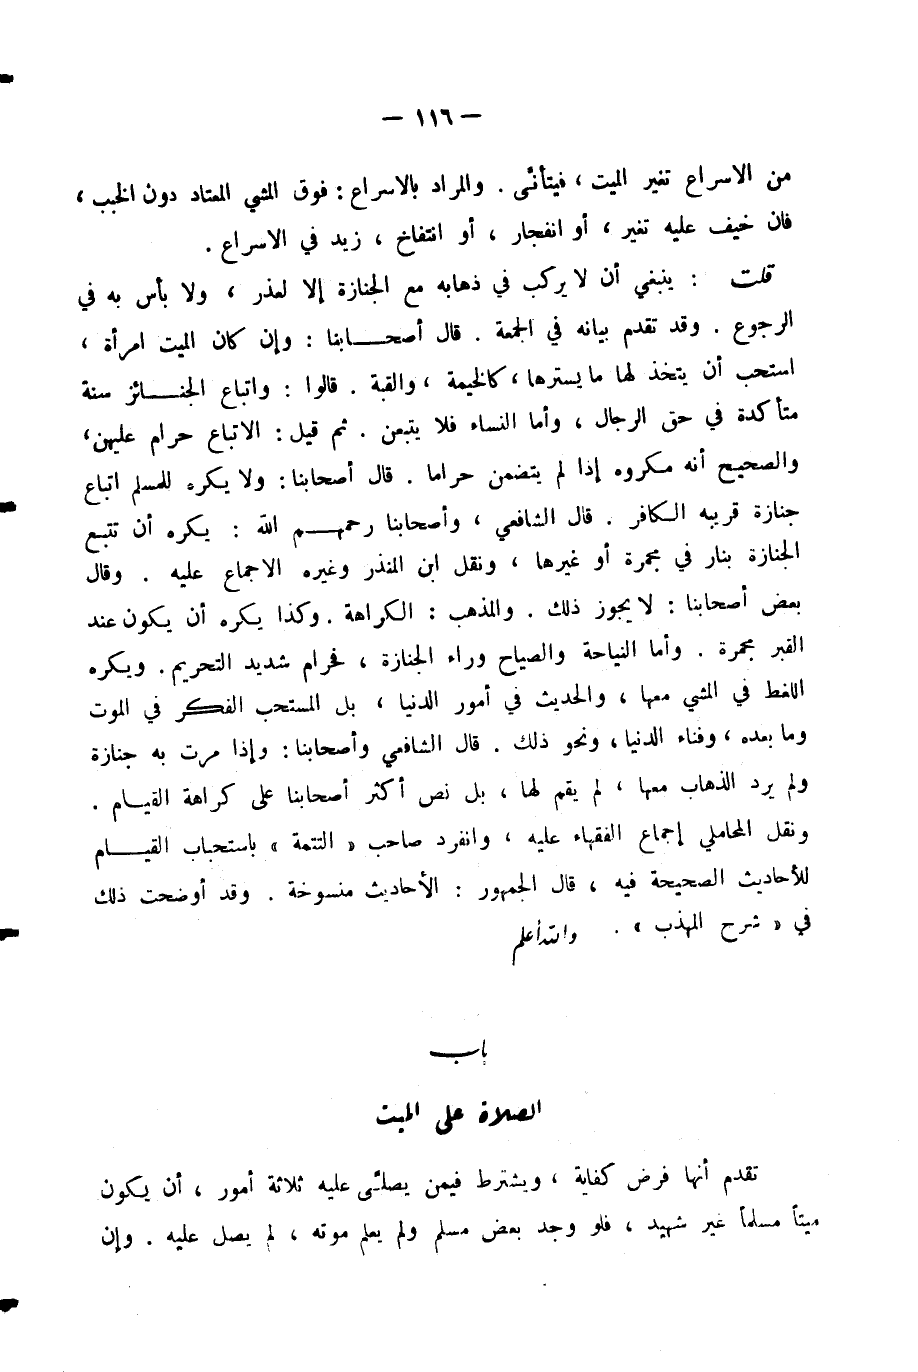 — ١١٦ —
من الاسراع تغير الميت ، فيتأنّى . والمراد بالاسراع : فوق المشي المعتاد دون الخبب ،
فان خيف عليه تغير ، أو انفجار ، أو انتفاخ ، زيد في الاسراع .
قلت : ينبغي أن لا يركب في ذهابه مع الجنازة إلا لعذر ، ولا بأس به في
الرجوع . وقد تقدم بيانه في الجمعة . قال أصحـــابنا : وإن كان الميت امرأة ،
استحب أن يتخذ لها ما يسترها ، كالخيمة ، والقبة . قالوا : واتباع الجنـــائز سنة
متأكدة في حق الرجال ، وأما النساء فلا يتبعن . ثم قيل : الاتباع حرام عليهن ،
والصحيح أنه مكروه إذا لم يتضمن حراما . قال أصحابنا : ولا يكره للمسلم اتباع
جنازة قريبه الكافر . قال الشافعي ، وأصحابنا رحمهــم الله : يكره أن تتبع
الجنازة بنار في مجمرة أو غيرها ، ونقل ابن المنذر وغيره الاجماع عليه . وقال
بعض أصحابنا : لا يجوز ذلك . والمذهب : الكراهة . وكذا يكره أن يكون عند
القبر مجمرة . وأما النياحة والصياح وراء الجنازة ، فحرام شديد التحريم . ويكره
اللغط في المشي معها ، والحديث في أمور الدنيا ، بل المستحب الفكر في الموت
وما بعده ، وفناء الدنيا ، ونحو ذلك . قال الشافعي وأصحابنا : وإذا مرت به جنازة
ولم يرد الذهاب معها ، لم يقم لها ، بل نص أكثر أصحابنا على كراهة القيـام .
ونقل المحاملي إجماع الفقهاء عليه ، وانفرد صاحب « التتمة » باستحباب القيـــام
للأحاديث الصحيحة فيه ، قال الجمهور : الأحاديث منسوخة . وقد أوضحت ذلك
في « شرح المهذب » . والله أعلم
باب
الصلاة على الميت
تقدم أنها فرض كفاية ، ويشترط فيمن يصلّى عليه ثلاثة أمور ، أن يكون
ميتاً مسلماً غير شهيد ، فلو وجد بعض مسلم ولم يعلم موته ، لم يصل عليه . وإن